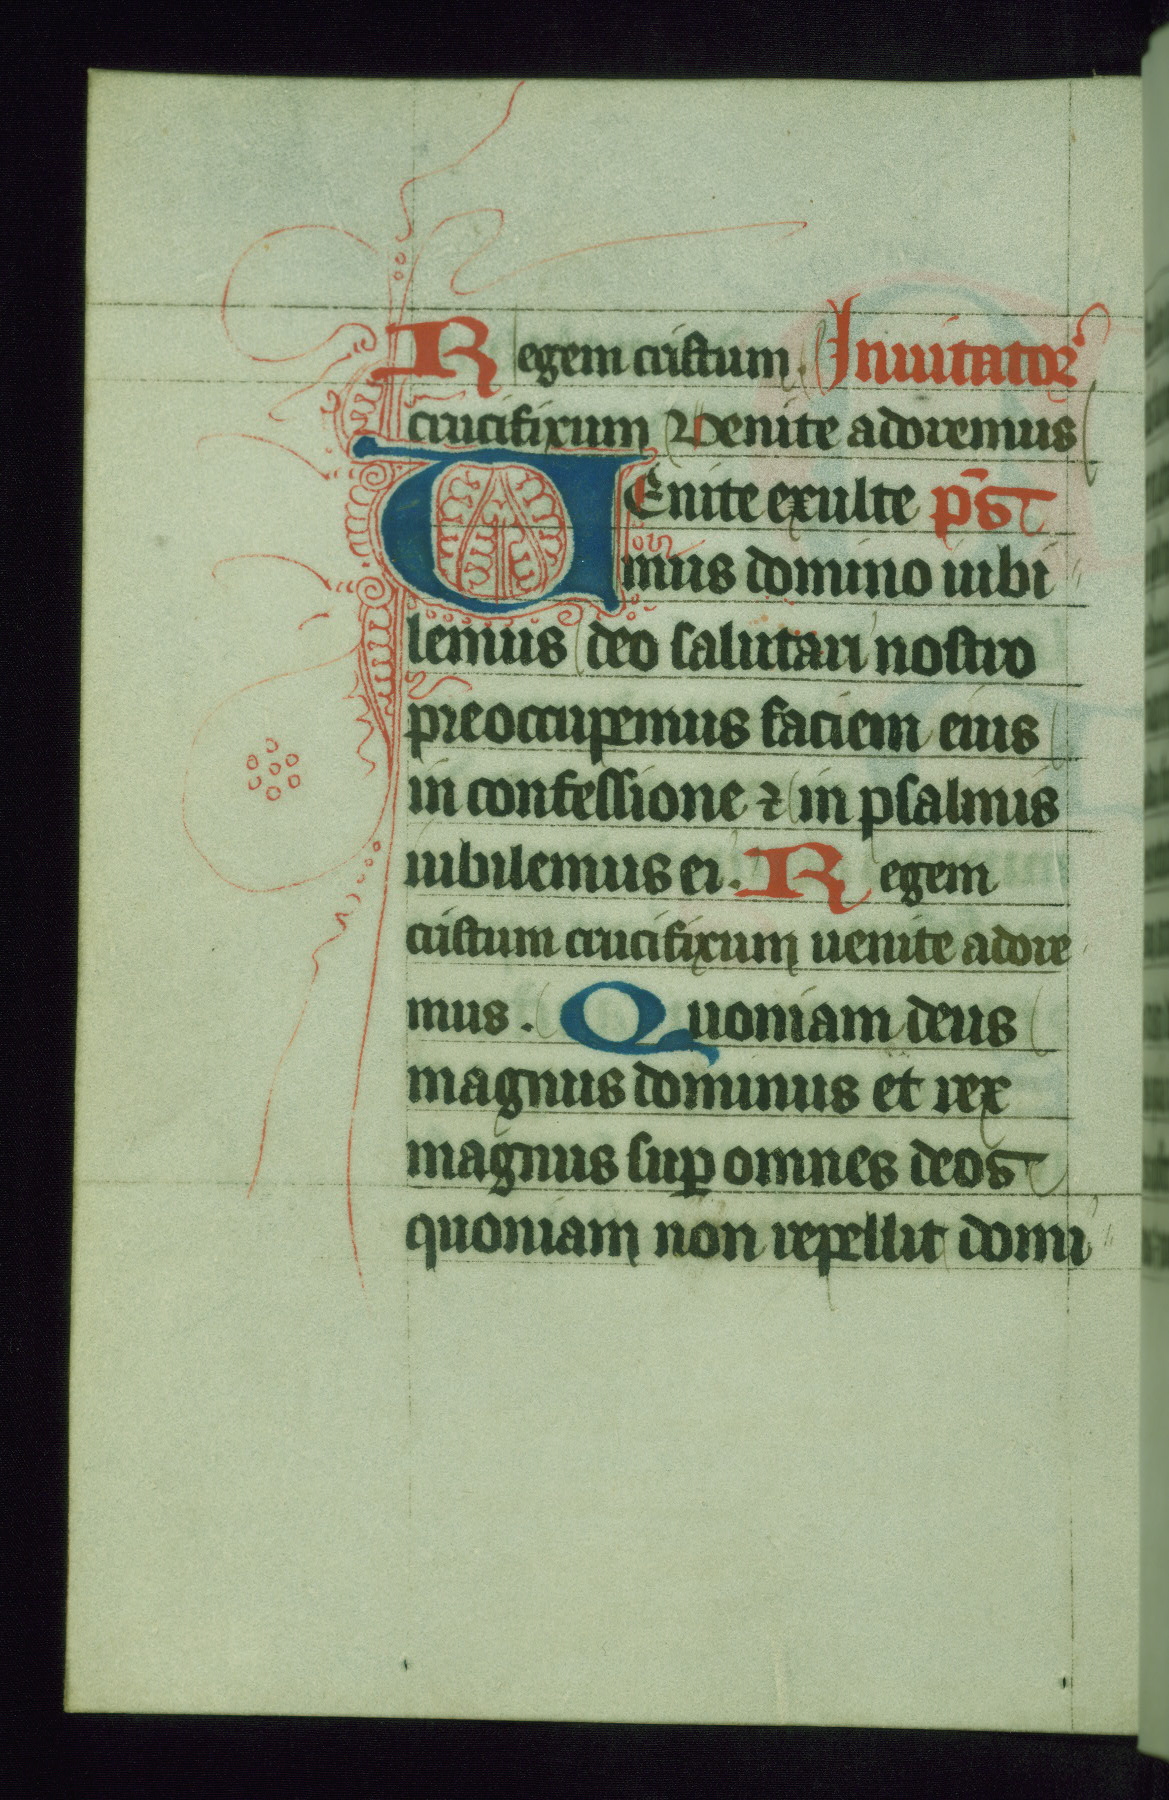 Regem cristum. Inuitator᾽
crucifixum Venite adoremus
VEnite exulte p̄s
mus domino iubi
lemus deo salutari nostro
preoccupemus faciem eius
in confessione ⁊ in psalmis
iubilemus ei. Regem
cristum crucifixum uenite adore
mus. Quoniam deus
magnus dominus et rex
magnus suꝑ omnes deos
quoniam non repellit domi